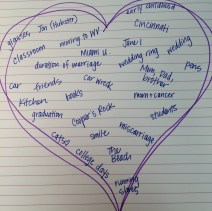 early childhood
glasses Jon (Hubster) Cincinnati
classroom moving to WV
Miami U. wedding ring wedding
duration of marriage Mom, Dad, pens
car friends car wreck brother
kitchen books mom + cancer
graduation Cooper's Rock students
smile miscarriage
college days The Beach
running shoes